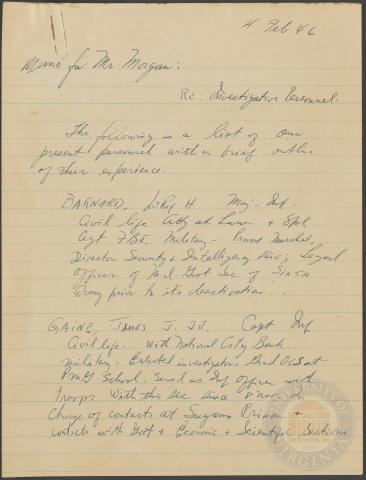 4 Feb 46
Memo for Mr. Morgan:
Re: Investigative Personnel.
The following is a list of our
present personnel with a brief outline
of their experience.
BARNARD, H Maj. Inf.
Civil life Atty at Law & Spl
Agt FBI. Military - Provost Marshal,
Director Security & Intelligence Div; Legal
Officer of Mil. Govt Sec of SIXTH
Army prior to its deactivation.
GAINE, JAMES J. JR. Capt Inf
Civil life - With National City Bank.
Military - Enlisted investigator. Grad OCS at
PMG School. Served as Inf Officer with
troops. With this Sec since 8 Nov. In
Charge of contacts at Sugamo Prison &
contacts with Govt & Economic & Scientific Sections
UNIVERSITY OF
VIRGINIA